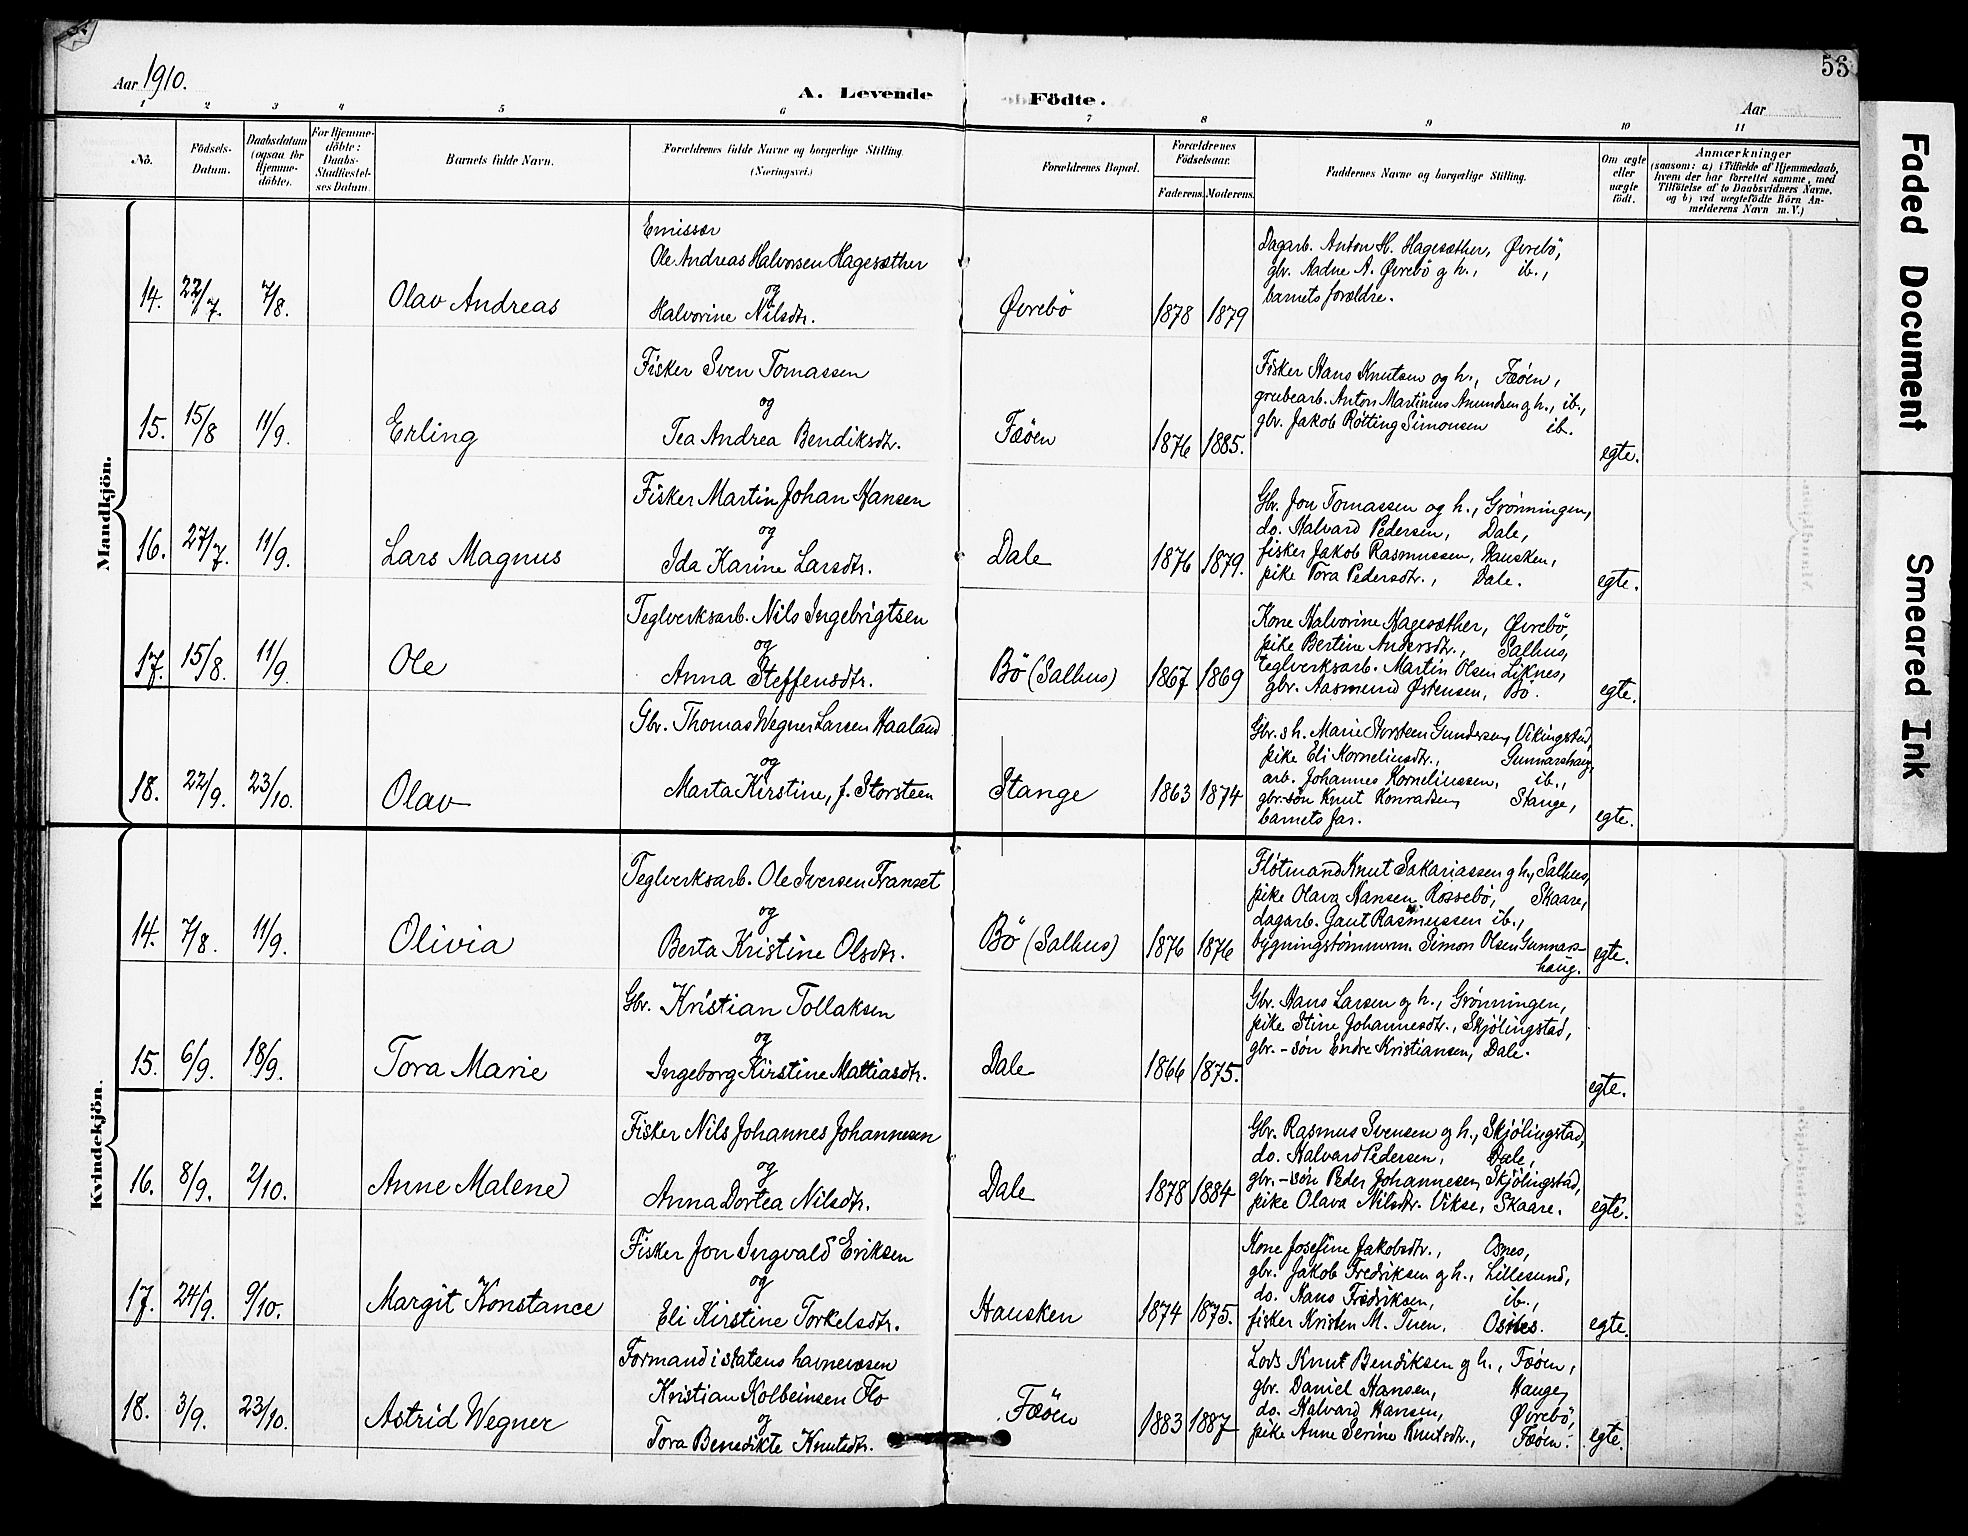 Aar 1910.
A. Levende Födte.
Aar
53
1 2 3 4 5 6 7 8 9 10 11
No.
Födsels-Datum.
Daabsdatum (ogsaa for Hjemme-döbte).
For Hjemme-döbte: Daabs-Stadfæstel-ses Datum.
Barnets fulde Navn.
Forældrenes fulde Navne og borgerlige Stilling. (Næringsvei.)
Forældrenes Bopæl.
Forældrenes Födselsaar.
Faderens. Moderens.
Faddernes Navne og borgerlige Stilling.
Om ægte eller uægte födt.
Anmærkninger
(saasom: a) i Tilfælde af Hjemmedaab, hvem der har forrettet samme, med Tilföielse af to Daabsvidners Navne, og b) ved uægtefödte Börn An-melderens Navn m. V.)
Mandkjön.
14. 22/7. 7/8. Olav Andreas
Emissær
Ole Andreas Halvorsen Hagesæther
og
Halvorine Nilsdtr.
Øvrebö 1878 1879
Dagarb. Anton H. Hagesæther, Øvrebö,
gbr. Aadne A. Øvrebö og h., ib.,
barnets forældre.
15. 15/8 11/9. Erling
Fisker Sven Tomassen
og
Tea Andrea Bendiksdtr.
Fæöen 1876 1885.
Fisker Hans Knutsen og h., Fæöen,
grubearb. Anton Martinius Amundsen og h., ib.,
gbr. Jakob Røtting Simonsen ib.
egte.
16. 27/7. 11/9. Lars Magnus
Fisker Martin Johan Hansen
og
Ida Karine Larsdtr.
Dale 1876 1879.
Gbr. Jon Tomassen og h., Grönningen,
do. Halvard Pedersen, Dale,
fisker Jakob Rasmussen, Hausken,
pike Tora Pedersdtr., Dale.
egte.
17. 15/8. 11/9. Ole
Teglverksarb. Nils Ingebrigtsen
og
Anna Steffensdtr.
Bö (Salhus) 1867 1869
Kone Halvorine Hagesæther, Øvrebö,
pike Bertine Andersdtr., Salhus,
teglverksarb. Martin Olsen Liknes,
gbr. Aasmund Østensen, Bö.
egte.
18. 22/9. 23/10. Olav
Gbr. Thomas Wegner Larsen Haaland
og
Marta Kirstine, f. Storsteen
Stange 1863 1874
Gbr.s h. Marie Storsteen Gundersen, Vikingstad,
pike Eli Korneliusdtr., Gunnarshaug,
arb. Johannes Korneliussen, ib.,
gbr.-sön Knut Konradsen, Stange,
barnets far.
egte.
Kvindekjön.
14. 7/8. 11/9. Olivia
Teglverksarb. Ole Iversen Transet
og
Berta Kristine Olsdtr.
Bö (Salhus) 1876 1876
Flötmand Knut Sakariassen og h., Salhus,
pike Olava Hansen Rossebö, Skaare,
dagarb. Gaut Rasmussen ib.,
bygningstömmerm. Simon Olsen Gunnars-
haug.
egte.
15. 6/9. 18/9. Tora Marie
Gbr. Kristian Tollaksen
og
Ingeborg Kirstine Mattiasdtr.
Dale 1866 1875.
Gbr. Hans Larsen og h., Grönningen,
pike Stine Johannesdtr., Skjölingstad,
gbr.-sön Endre Kristiansen, Dale.
egte.
16. 8/9. 2/10. Anne Malene
Fisker Nils Johannes Johannesen
og
Anna Dortea Nilsdtr.
Dale 1878 1884
Gbr. Rasmus Svensen og h., Skjölingstad,
do. Halvard Pedersen, Dale,
gbr.-sön Peder Johannesen, Skjölingstad,
pike Olava Nilsdtr. Vikse, Skaare.
egte.
17. 24/9. 9/10. Margit Konstance
Fisker Jon Ingvald Eriksen
og
Eli Kirstine Torkelsdtr.
Hausken 1874 1875.
Kone Josefine Jakobsdtr., Osnes,
gbr. Jakob Fredriksen og h., Lillesund,
do. Hans Fredriksen, ib.,
fisker Kristen M. Osnes.
egte.
18. 3/9. 23/10. Astrid Wegner
Formand i statens havnevæsen
Kristian Kolbeinsen Flo
og
Tora Benedikte Knutsdtr.
Fæöen 1883 1887
Lods Knut Bendiksen og h., Fæöen,
gbr. Daniel Hansen, Hauge,
do. Halvard Hansen, Øvrebö,
pike Anne Serine Knutsdtr., Fæöen.
egte.
Faded Document
Smeared Ink